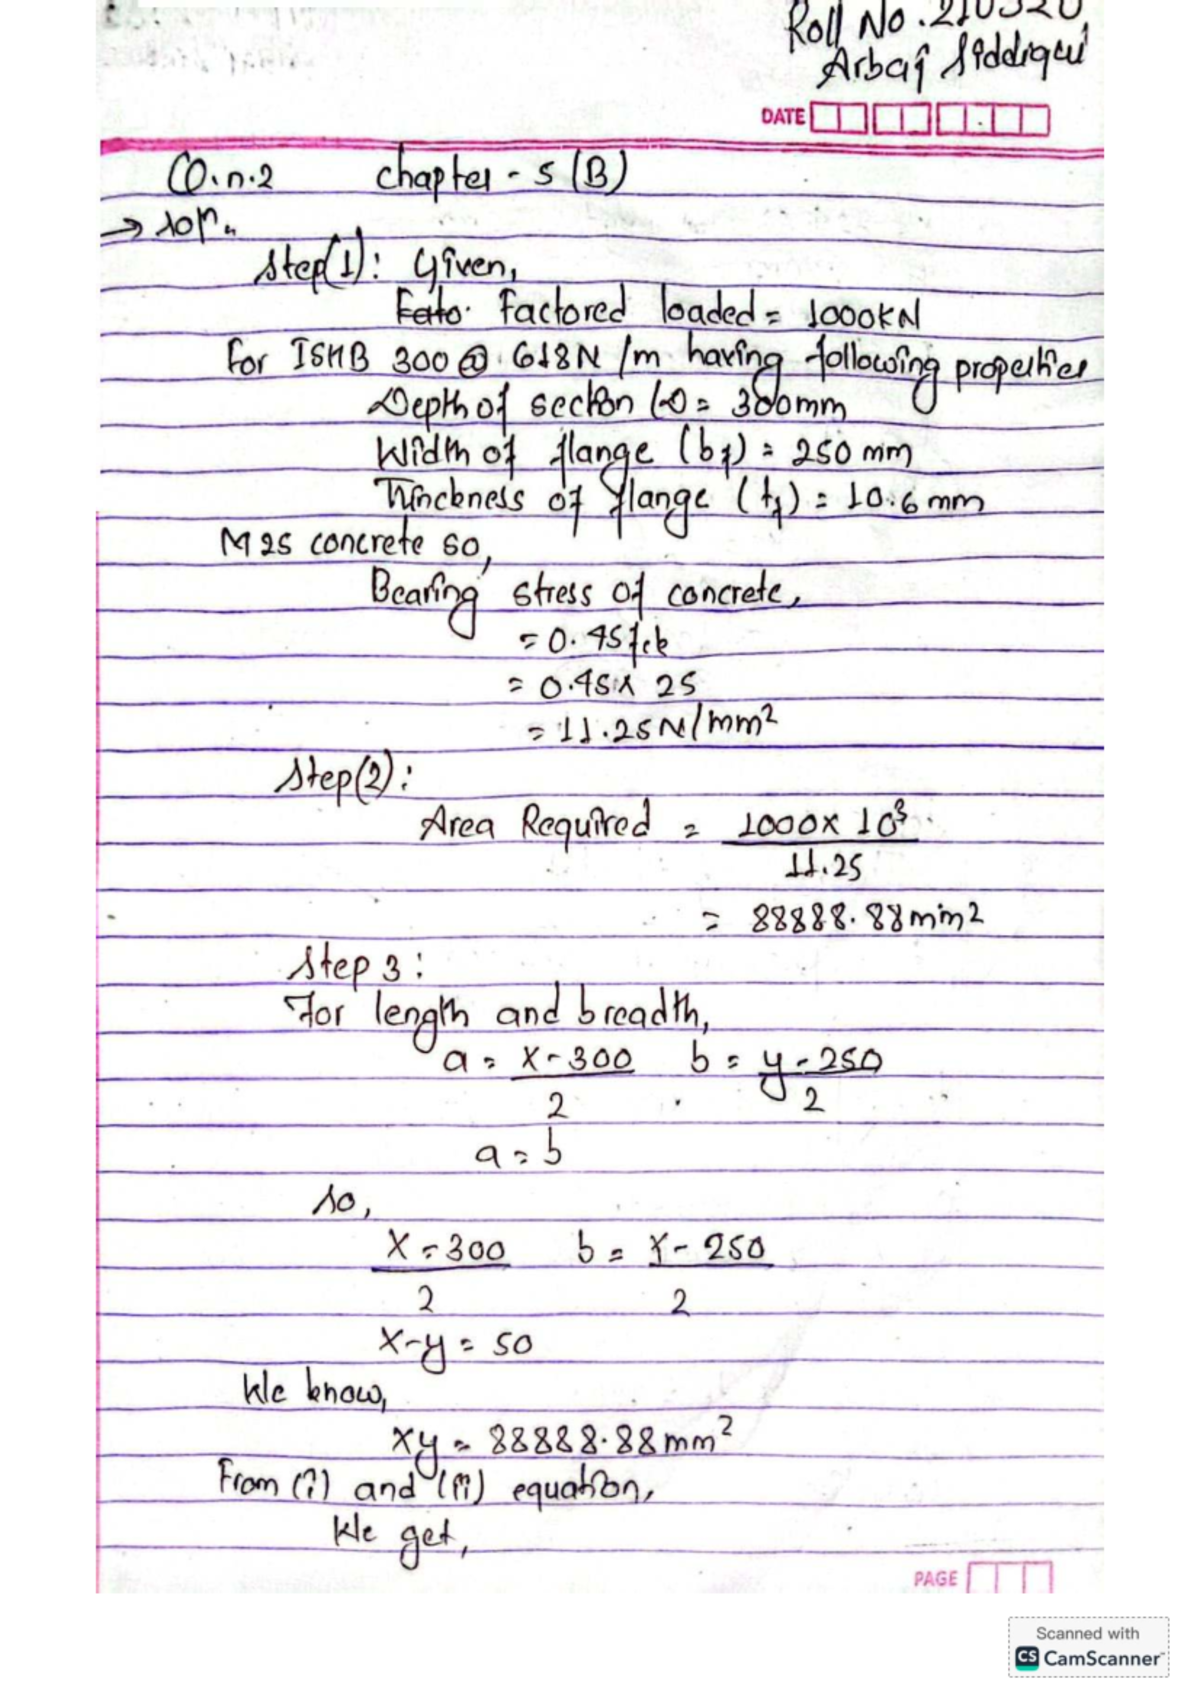 Roll No. 210320
Arbaj Siddiqui
DATE
Q.n.2 chapter - 5 (B)
→ solⁿ.
Step(1): Given,
Facto. Factored loaded = 1000KN
For ISHB 300 @ 618N/m having following properties
Depth of section (D = 300mm
Width of flange (bf) = 250 mm
Thinckness of flange (tf) = 10.6 mm
M25 concrete so,
Bearing stress of concrete,
= 0.45fck
= 0.45 x 25
= 11.25N/mm²
Step(2):
Area Required = 1000 x 10³
11.25
= 88888.88mm2
Step 3:
For length and breadth,
a = x - 300 b = y - 250
2 2
a = b
so,
x - 300 b = x - 250
2 2
x-y = 50
We know,
xy = 88888.88mm²
From (i) and (ii) equation,
We get,
PAGE
Scanned with
CS CamScanner